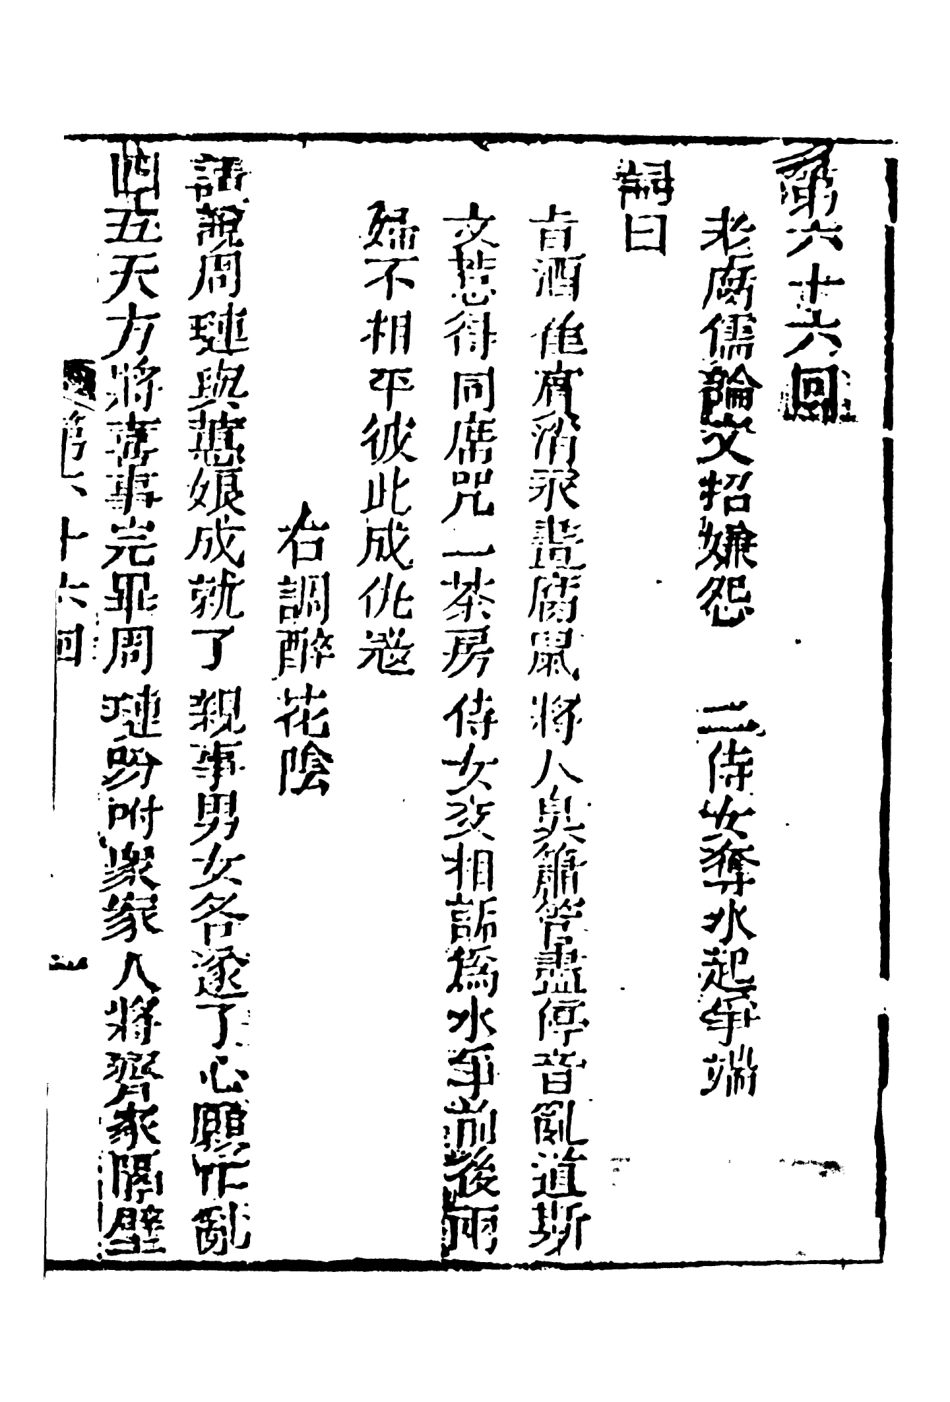 第六十六回
老腐儒論文招嫌怨　二侍女奪水起爭端
詞曰
旨酒佳肴消永晝腐鼠將人臭簫管盡停音亂道斯
文惹得同席咒一茶房侍女交相詬為水爭前後兩
婦不相平彼此成仇寇
右調醉花陰
話說周璉與蕙娘成就了親事男女各遂了心願忙亂
四五天方將喜事完畢周璉吩咐衆家人將齊家隔壁
第六十六回　一